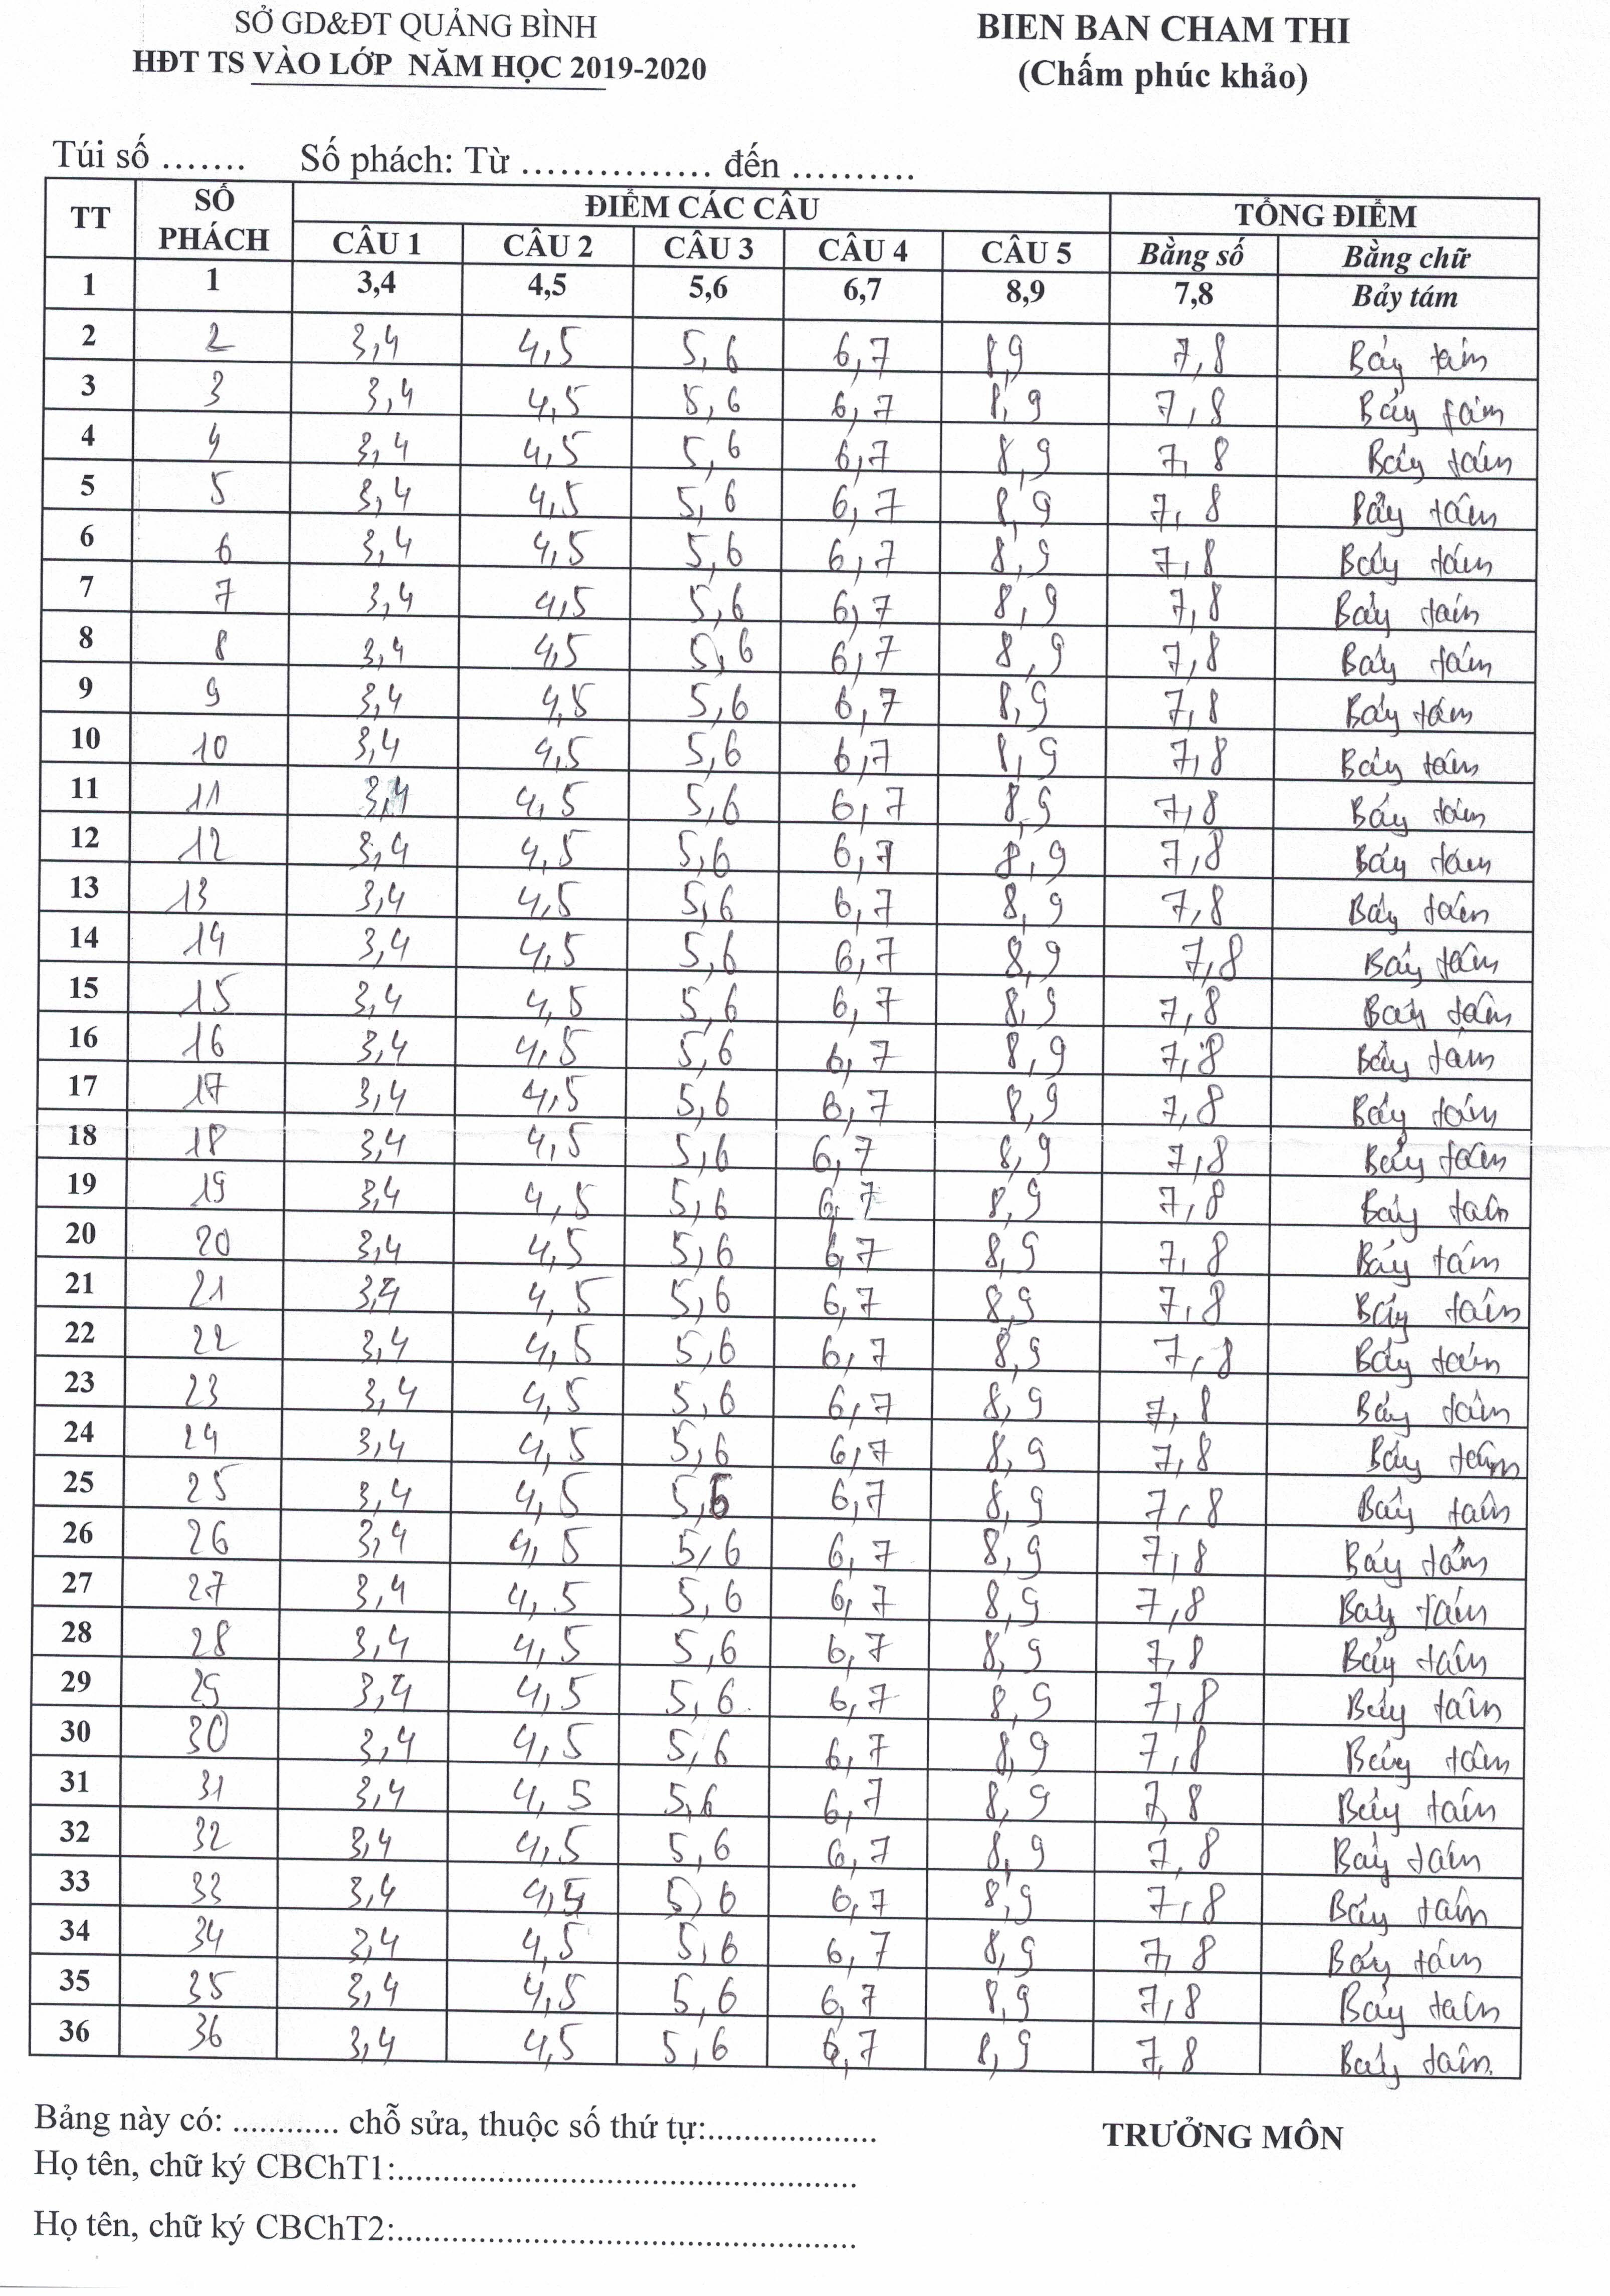 SỞ GD&ĐT QUẢNG BÌNH
HĐT TS VÀO LỚP NĂM HỌC 2019-2020
BIEN BAN CHAM THI
(Chấm phúc khảo)
Túi số ....... Số phách: Từ ............... đến ..........
TT SỐ PHÁCH ĐIỂM CÁC CÂU TỔNG ĐIỂM
CÂU 1 CÂU 2 CÂU 3 CÂU 4 CÂU 5 Bằng số Bằng chữ
1 1 3,4 4,5 5,6 6,7 8,9 7,8 Bảy tám
2 2 3,4 4,5 5,6 6,7 8,9 7,8 Bảy tám
3 3 3,4 4,5 5,6 6,7 8,9 7,8 Bảy tám
4 4 3,4 4,5 5,6 6,7 8,9 7,8 Bảy tám
5 5 3,4 4,5 5,6 6,7 8,9 7,8 Bảy tám
6 6 3,4 4,5 5,6 6,7 8,9 7,8 Bảy tám
7 7 3,4 4,5 5,6 6,7 8,9 7,8 Bảy tám
8 8 3,4 4,5 5,6 6,7 8,9 7,8 Bảy tám
9 9 3,4 4,5 5,6 6,7 8,9 7,8 Bảy tám
10 10 3,4 4,5 5,6 6,7 8,9 7,8 Bảy tám
11 11 3,4 4,5 5,6 6,7 8,9 7,8 Bảy tám
12 12 3,4 4,5 5,6 6,7 8,9 7,8 Bảy tám
13 13 3,4 4,5 5,6 6,7 8,9 7,8 Bảy tám
14 14 3,4 4,5 5,6 6,7 8,9 7,8 Bảy tám
15 15 3,4 4,5 5,6 6,7 8,9 7,8 Bảy tám
16 16 3,4 4,5 5,6 6,7 8,9 7,8 Bảy tám
17 17 3,4 4,5 5,6 6,7 8,9 7,8 Bảy tám
18 18 3,4 4,5 5,6 6,7 8,9 7,8 Bảy tám
19 19 3,4 4,5 5,6 6,7 8,9 7,8 Bảy tám
20 20 3,4 4,5 5,6 6,7 8,9 7,8 Bảy tám
21 21 3,4 4,5 5,6 6,7 8,9 7,8 Bảy tám
22 22 3,4 4,5 5,6 6,7 8,9 7,8 Bảy tám
23 23 3,4 4,5 5,6 6,7 8,9 7,8 Bảy tám
24 24 3,4 4,5 5,6 6,7 8,9 7,8 Bảy tám
25 25 3,4 4,5 5,6 6,7 8,9 7,8 Bảy tám
26 26 3,4 4,5 5,6 6,7 8,9 7,8 Bảy tám
27 27 3,4 4,5 5,6 6,7 8,9 7,8 Bảy tám
28 28 3,4 4,5 5,6 6,7 8,9 7,8 Bảy tám
29 29 3,4 4,5 5,6 6,7 8,9 7,8 Bảy tám
30 30 3,4 4,5 5,6 6,7 8,9 7,8 Bảy tám
31 31 3,4 4,5 5,6 6,7 8,9 7,8 Bảy tám
32 32 3,4 4,5 5,6 6,7 8,9 7,8 Bảy tám
33 33 3,4 4,5 5,6 6,7 8,9 7,8 Bảy tám
34 34 3,4 4,5 5,6 6,7 8,9 7,8 Bảy tám
35 35 3,4 4,5 5,6 6,7 8,9 7,8 Bảy tám
36 36 3,4 4,5 5,6 6,7 8,9 7,8 Bảy tám
Bảng này có: ........... chỗ sửa, thuộc số thứ tự:..................
TRƯỞNG MÔN
Họ tên, chữ ký CBChT1:................................................
Họ tên, chữ ký CBChT2:................................................